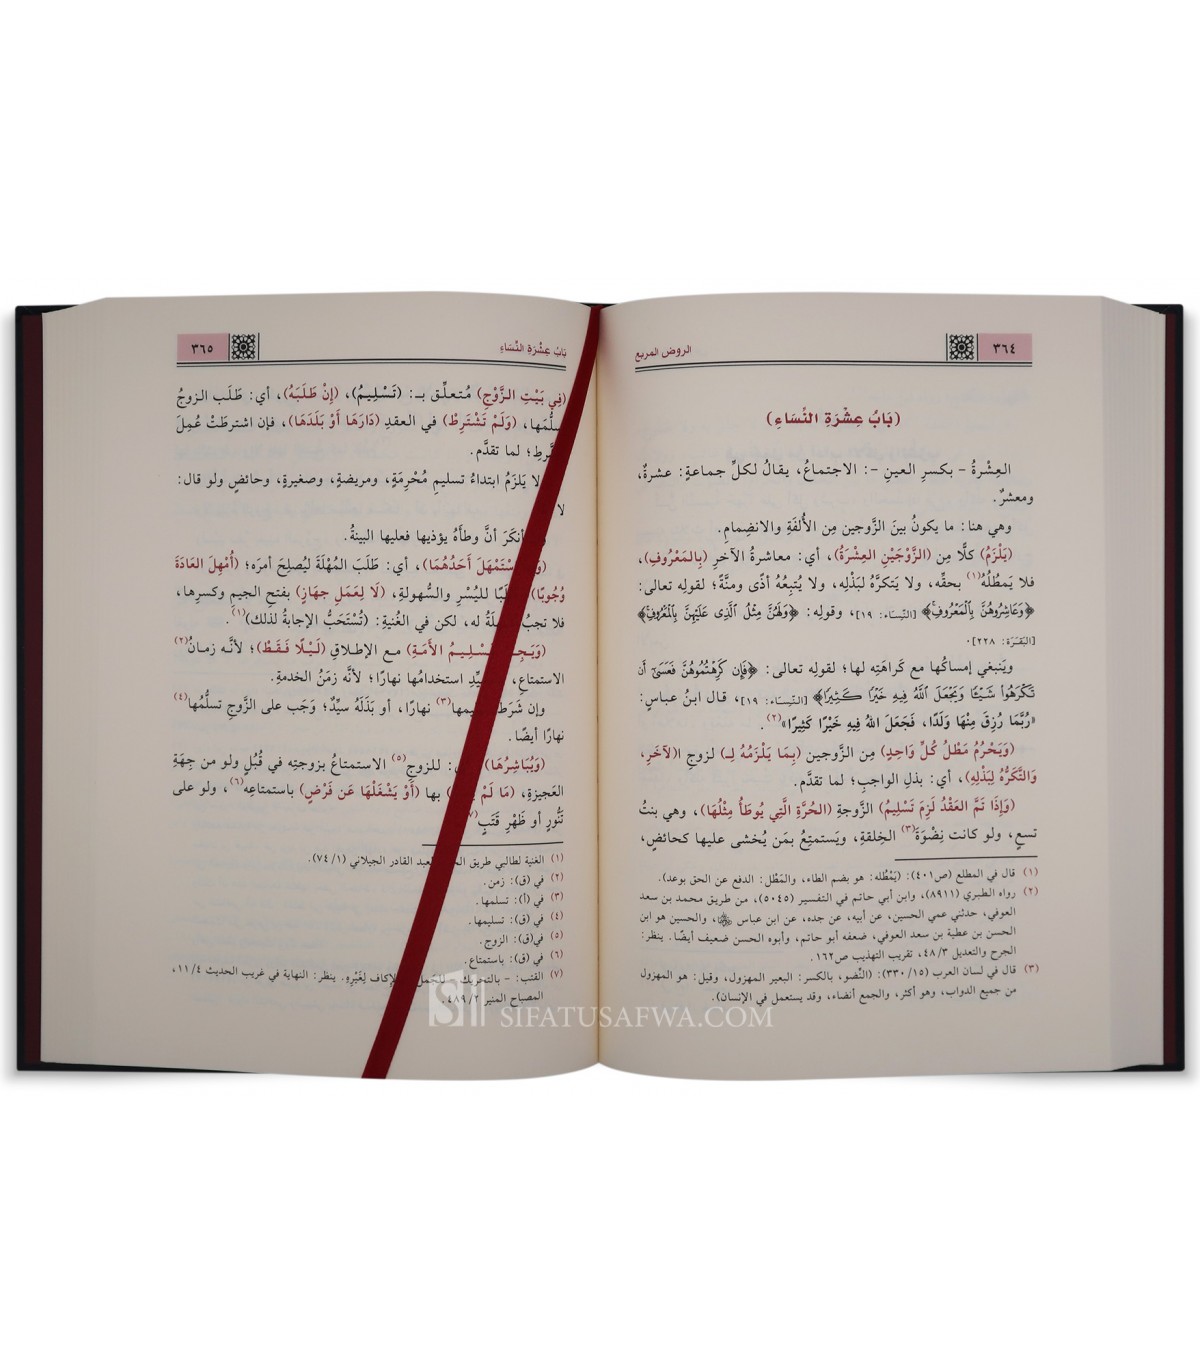 ٣٦٤
الروض المربع
(بَابُ عِشْرَةِ النِّسَاءِ)
العِشْرةُ - بكسرِ العينِ -: الاجتماعُ، يقالُ لكلِّ جماعةٍ: عشرةٌ،
ومعشرٌ.
وهي هنا: ما يكونُ بينَ الزَّوجين مِن الأُلفَةِ والانضِمامِ.
(يَلْزَمُ) كلًّا مِن (الزَّوْجَيْنِ العِشْرَةُ)، أي: معاشرةُ الآخرِ (بِالمَعْرُوفِ)،
فلا يَمطُلُهُ(١) بحقِّه، ولا يَتكرَّهُ لبَذْلِه، ولا يُتبِعُهُ أذًى ومنَّةً؛ لقولِه تعالى:
﴿وَعَاشِرُوهُنَّ بِالْمَعْرُوفِ﴾ [النِّسَاء: ١٩]، وقولِه: ﴿وَلَهُنَّ مِثْلُ الَّذِي عَلَيْهِنَّ بِالْمَعْرُوفِ﴾
[البَقَرَة: ٢٢٨].
ويَنبغي إمساكُها مع كَراهَتِه لها؛ لقولِه تعالى: ﴿فَإِن كَرِهْتُمُوهُنَّ فَعَسَىٰٓ أَن
تَكْرَهُوا۟ شَيْـًٔا وَيَجْعَلَ اللَّهُ فِيهِ خَيْرًا كَثِيرًا﴾ [النِّسَاء: ١٩]، قال ابنُ عباسٍ:
«رُبَّمَا رُزِقَ مِنْهَا وَلَدًا، فَجَعَلَ اللهُ فِيهِ خَيْرًا كَثِيرًا»(٢).
(وَيَحْرُمُ مَطْلُ كُلِّ وَاحِدٍ) مِن الزَّوجين (بِمَا يَلْزَمُهُ لِـ) لزوجِ ا(لآخَرِ،
وَالتَّكَرُّهُ لِبَذْلِهِ)، أي: بذلِ الواجبِ؛ لما تقدَّم.
(وَإِذَا تَمَّ العَقْدُ لَزِمَ تَسْلِيمُ) الزَّوجةِ (الحُرَّةِ الَّتِي يُوطَأُ مِثْلُهَا)، وهي بنتُ
تسعٍ، ولو كانت نِضْوَةَ(٣) الخِلقةِ، ويَستمتِعُ بمَن يُخشى عليها كحائضٍ،
(١) قال في المطلع (ص٤٠١): (يَمْطُله: هو بضم الطاء، والمَطْل: الدفع عن الحق بوعد).
(٢) رواه الطبري (٨٩١١)، وابن أبي حاتم في التفسير (٥٠٤٥)، من طريق محمد بن سعد
العوفي، حدثني عمي الحسين، عن أبيه، عن جده، عن ابن عباس، والحسين هو ابن
الحسن بن عطية بن سعد العوفي، ضعفه أبو حاتم، وأبوه الحسن ضعيف أيضًا. ينظر:
الجرح والتعديل ٤٨/٣، تقريب التهذيب ص١٦٢.
(٣) قال في لسان العرب (٣٣٠/١٥): (النِّضو، بالكسر: البعير المهزول، وقيل: هو المهزول
من جميع الدواب، وهو أكثر، والجمع أنضاء، وقد يستعمل في الإنسان).
بَابُ عِشْرَةِ النِّسَاءِ
٣٦٥
(فِي بَيْتِ الزَّوْجِ) مُتعلِّق بـ: (تَسْلِيمُ)، (إِنْ طَلَبَهُ)، أي: طَلَب الزوجُ
(وَلَمْ تَشْتَرِطْ) في العقدِ (دَارَهَا أَوْ بَلَدَهَا)، فإن اشترطَتْ عُمِلَ
لما تقدَّم.
لا يَلزَمُ ابتداءً تسليمِ مُحْرِمَةٍ، ومريضةٍ، وصغيرةٍ، وحائضٍ ولو قال:
لا
أنكَرَ أنَّ وطأَهُ يؤذيها فعليها البينةُ.
أَحَدُهُمَا)، أي: طَلَبَ المُهْلَةَ ليُصلِحَ أمرَه؛ (أُمْهِلَ العَادَةَ
وُجُوبًا) لليُسْرِ والسُّهولةِ، (لَا لِعَمَلِ جِهَازٍ) بفتحِ الجيمِ وكسرِها،
فلا تجبُ له، لكن في الغُنيةِ: (تُسْتَحَبُّ الإجابةُ لذلك)(١).
الأَمَةِ) مع الإطلاقِ (لَيْلًا فَقَطْ)؛ لأنَّه زمانُ(٢)
الاستمتاعِ، استخدامُها نهارًا؛ لأنَّه زمَنُ الخدمةِ.
وإن شَرَط (٣) نهارًا، أو بَذَلَهُ سيِّدٌ؛ وَجَب على الزَّوجِ تسلُّمُها(٤)
نهارًا أيضًا.
(وَيُبَاشِرُهَا) للزوجِ(٥) الاستمتاعُ بزوجتِه في قُبُلٍ ولو من جِهَةِ
العَجيزةِ، (مَا لَمْ بها (أَوْ يَشْغَلْهَا عَن فَرْضٍ) باستمتاعِه(٦)، ولو على
تَنُّورٍ أو ظَهْرِ قَتَبٍ(٧)
(١) الغنية لطالبي طريق لعبد القادر الجيلاني (٧٤/١).
(٢) في (ق): زمن.
(٣) في (أ): تسلمها.
(٤) في (ق): تسليمها.
(٥) في (ق): الزوج.
(٦) في (ق): باستمتاع.
(٧) القتب: - بالتحريك - للجمل كالإكاف لِغَيْرِهِ. ينظر: النهاية في غريب الحديث ١١/٤،
المصباح المنير ٤٨٩/٢.
SIFATUSAFWA.COM